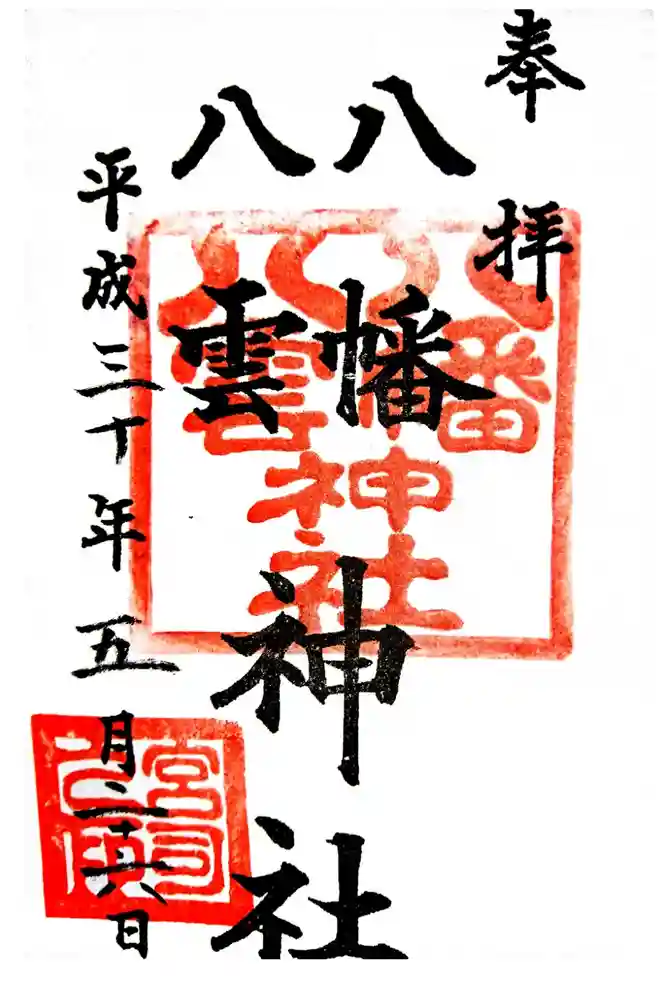 奉拝
八幡
八雲
神社
平成三十年五月二十六日
八幡
八雲
神社
宮司
之印